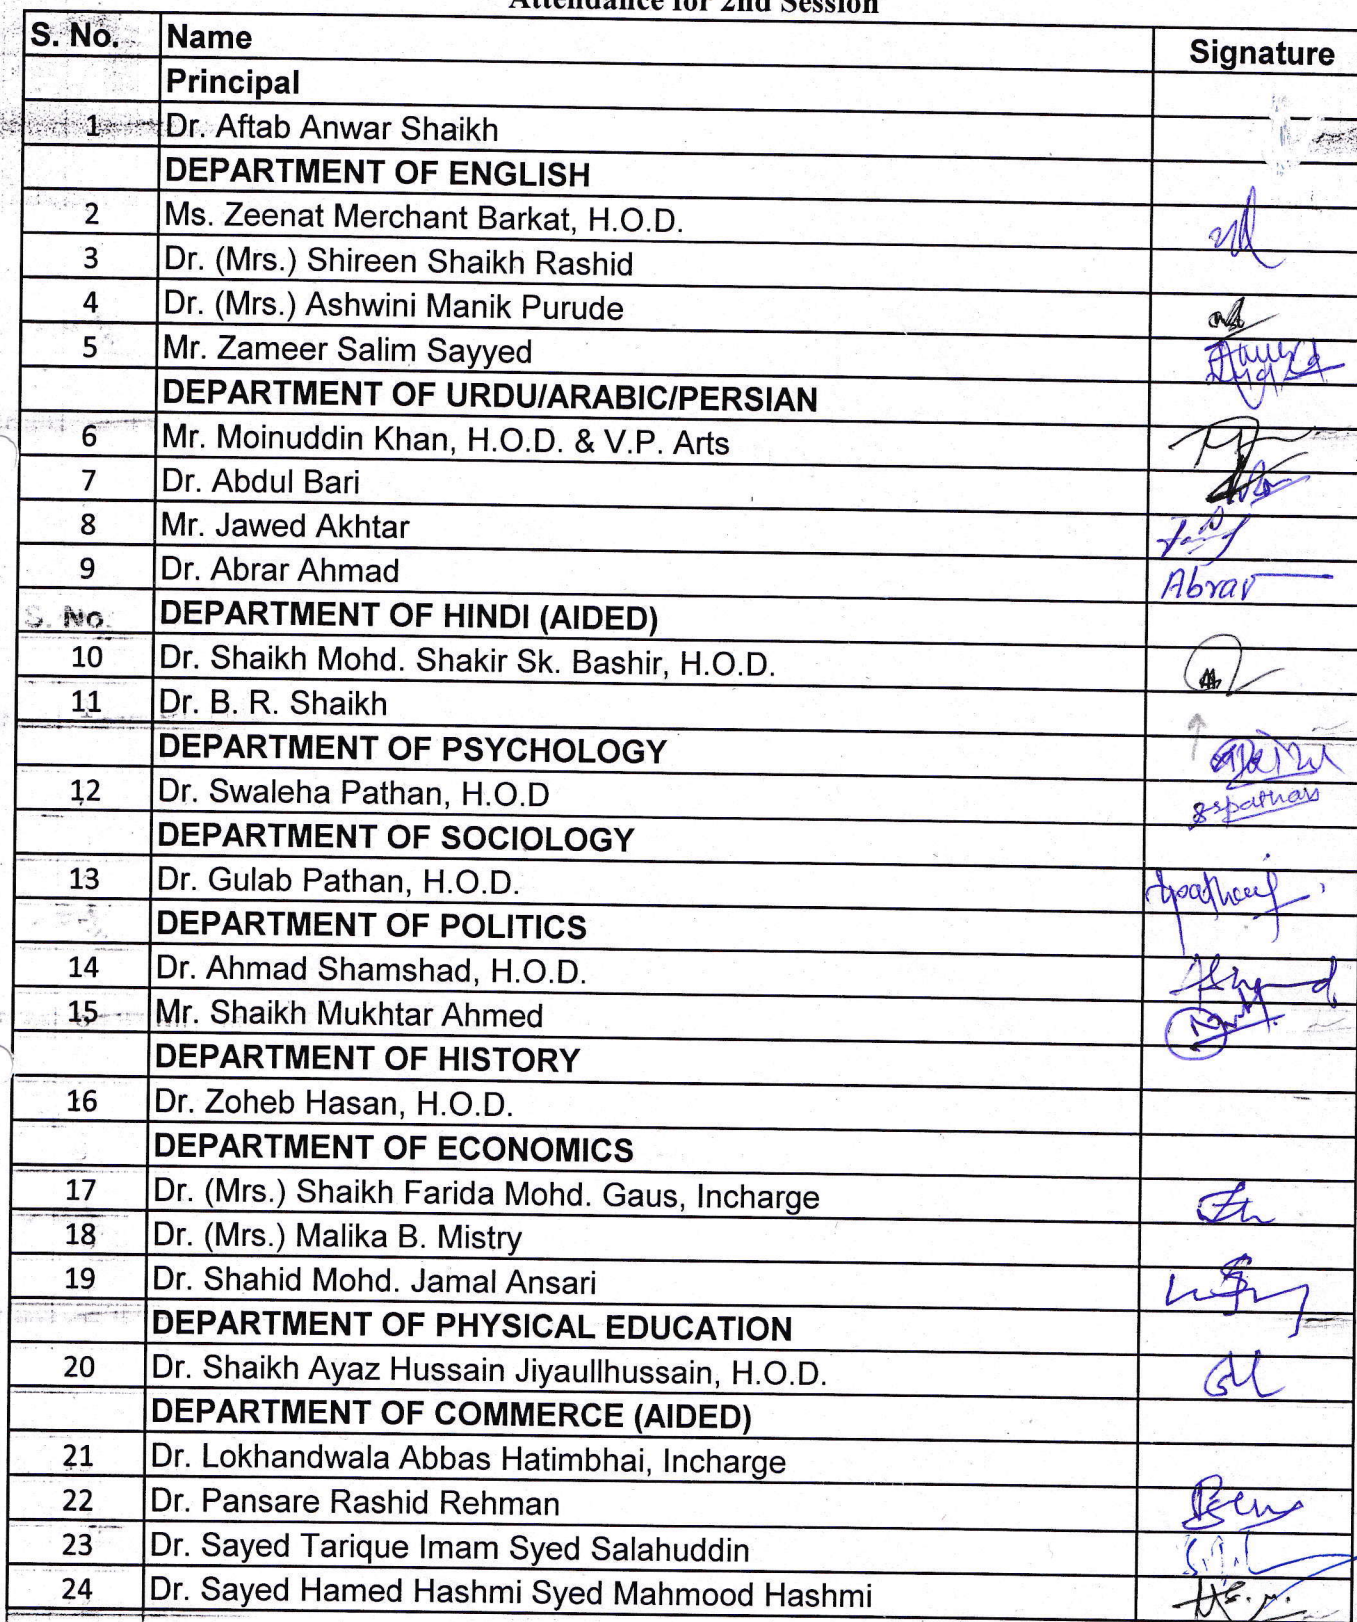 Attendance for 2nd Session
S. No. Name Signature
Principal
1 Dr. Aftab Anwar Shaikh
DEPARTMENT OF ENGLISH
2 Ms. Zeenat Merchant Barkat, H.O.D.
3 Dr. (Mrs.) Shireen Shaikh Rashid
4 Dr. (Mrs.) Ashwini Manik Purude
5 Mr. Zameer Salim Sayyed
DEPARTMENT OF URDU/ARABIC/PERSIAN
6 Mr. Moinuddin Khan, H.O.D. & V.P. Arts
7 Dr. Abdul Bari
8 Mr. Jawed Akhtar
9 Dr. Abrar Ahmad Abrar
S. No. DEPARTMENT OF HINDI (AIDED)
10 Dr. Shaikh Mohd. Shakir Sk. Bashir, H.O.D.
11 Dr. B. R. Shaikh
DEPARTMENT OF PSYCHOLOGY
12 Dr. Swaleha Pathan, H.O.D sspathan
DEPARTMENT OF SOCIOLOGY
13 Dr. Gulab Pathan, H.O.D.
DEPARTMENT OF POLITICS
14 Dr. Ahmad Shamshad, H.O.D.
15 Mr. Shaikh Mukhtar Ahmed
DEPARTMENT OF HISTORY
16 Dr. Zoheb Hasan, H.O.D.
DEPARTMENT OF ECONOMICS
17 Dr. (Mrs.) Shaikh Farida Mohd. Gaus, Incharge
18 Dr. (Mrs.) Malika B. Mistry
19 Dr. Shahid Mohd. Jamal Ansari
DEPARTMENT OF PHYSICAL EDUCATION
20 Dr. Shaikh Ayaz Hussain Jiyaullhussain, H.O.D.
DEPARTMENT OF COMMERCE (AIDED)
21 Dr. Lokhandwala Abbas Hatimbhai, Incharge
22 Dr. Pansare Rashid Rehman
23 Dr. Sayed Tarique Imam Syed Salahuddin
24 Dr. Sayed Hamed Hashmi Syed Mahmood Hashmi